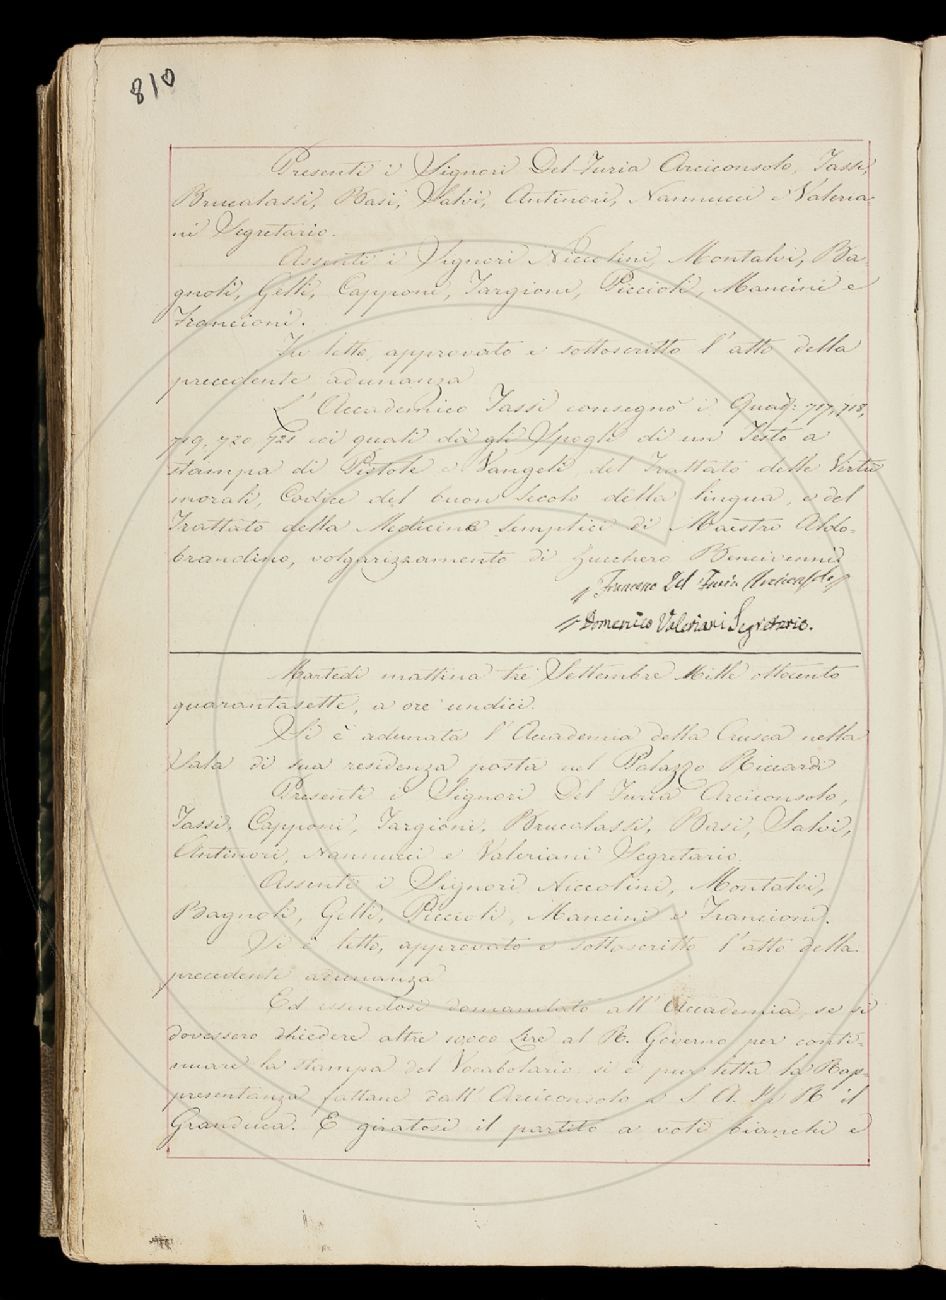 810
Presenti i Signori Del Furia Arciconsolo, Tassi,
Brucalassi, Basi, Salvi, Antinori, Nannucci e Valeria-
ni Segretario.
Assenti i Signori Niccolini, Montalvi, Ba-
gnoli, Gelli, Capponi, Targioni, Piccioli, Mancini e
Francioni.
Fu letto, approvato e sottoscritto l'atto della
precedente adunanza
L'Accademico Tassi consegnò i Quad: 717, 718,
719, 720, 721 coi quali dà gli Spogli di un Testo a
stampa di Pistole e Vangeli, del Trattato delle Virtù
morali, Codice del buon secolo della lingua, e del
Trattato della Medicine semplici di Maestro Aldo-
brandino, volgarizzamento di Zucchero Bencivenni.
Francesco Del Furia Arciconsolo
Domenico Valeriani Segretario.
Martedì mattina tre Settembre Mille ottocento
quarantasette, a ore undici.
Si è adunata l'Accademia della Crusca nella
Sala di sua residenza posta nel Palazzo Riccardi
Presenti i Signori Del Furia Arciconsolo,
Tassi, Capponi, Targioni, Brucalassi, Basi, Salvi,
Antinori, Nannucci e Valeriani Segretario.
Assenti i Signori Niccolini, Montalvi,
Bagnoli, Gelli, Piccioli, Mancini e Francioni.
Si è letto, approvato e sottoscritto l'atto della
precedente adunanza
Ed essendosi domandato all'Accademia, se si
dovessero chiedere altre 10,000 Lire al R. Governo per conti-
nuare la stampa del Vocabolario, si è pur letta la Rap-
presentanza fattane dall'Arciconsolo a S. A. I. e R. il
Granduca. E giratosi il partito a voti bianchi e